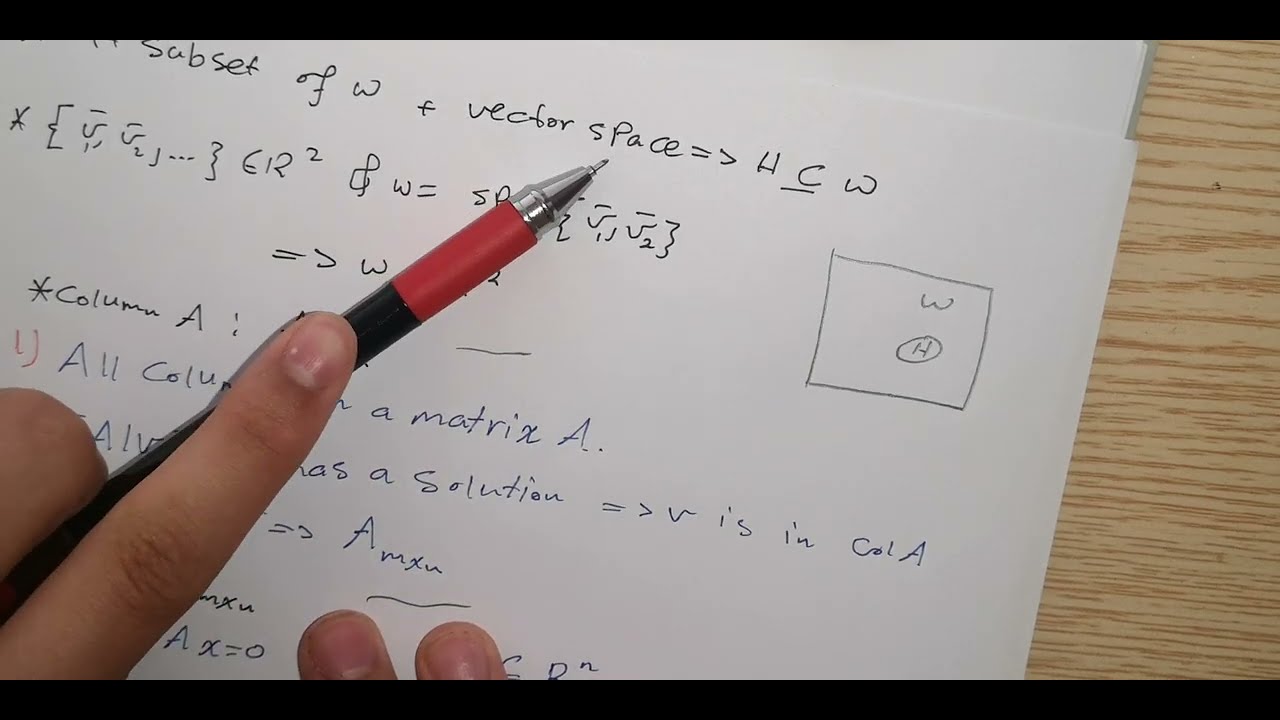 subset of w + vector space => H ⊆ w
* {v̄₁, v̄₂, ...} ∈ R² & w = {v̄₁, v̄₂}
=> w 2
*Column A :
1) All Colu a matrix A.
[A|v has a solution => v is in Col A
=> Amxn
mxn
Ax=0 ∈ Rⁿ
w
H